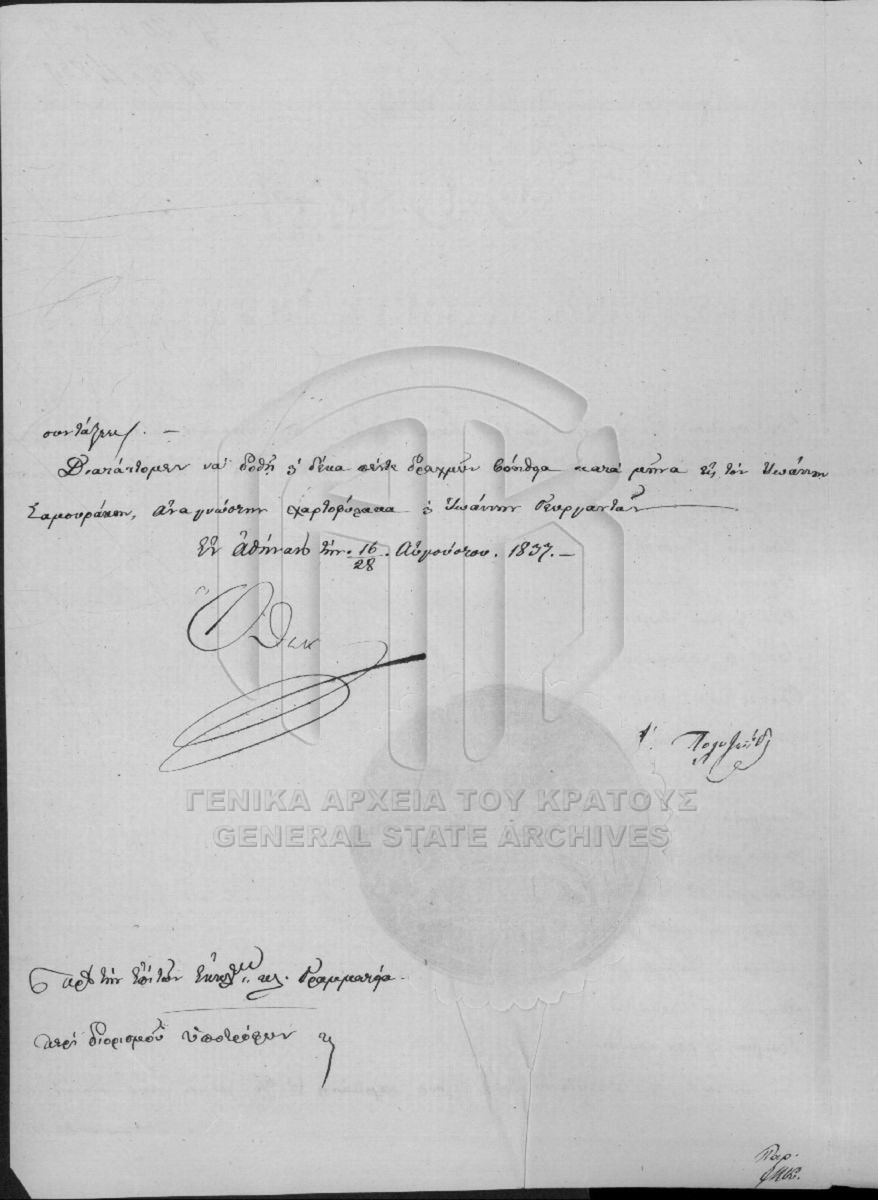 συντάξεως. —
Διατάττομεν νὰ δοθῇ ἡ δέκα πέντε δραχμῶν βοήθεια κατὰ μῆνα εἰς τὸν Ἰωάννην
Σαμουράκην, ἀναγνώστην χαρτοφύλακα ἢ Ἰωάννην Γεωργαντᾶν
Ἐν Ἀθήναις τὴν 16/28 Αὐγούστου. 1837. —
Ὄθων
Πολυζωΐδης
ΓΕΝΙΚΑ ΑΡΧΕΙΑ ΤΟΥ ΚΡΑΤΟΥΣ
GENERAL STATE ARCHIVES
Πρὸς τὴν ἐπὶ τῶν Ἐκκλησ. κτλ. Γραμματεία
περὶ διορισμοῦ ὑποτρόφων
Παρ.